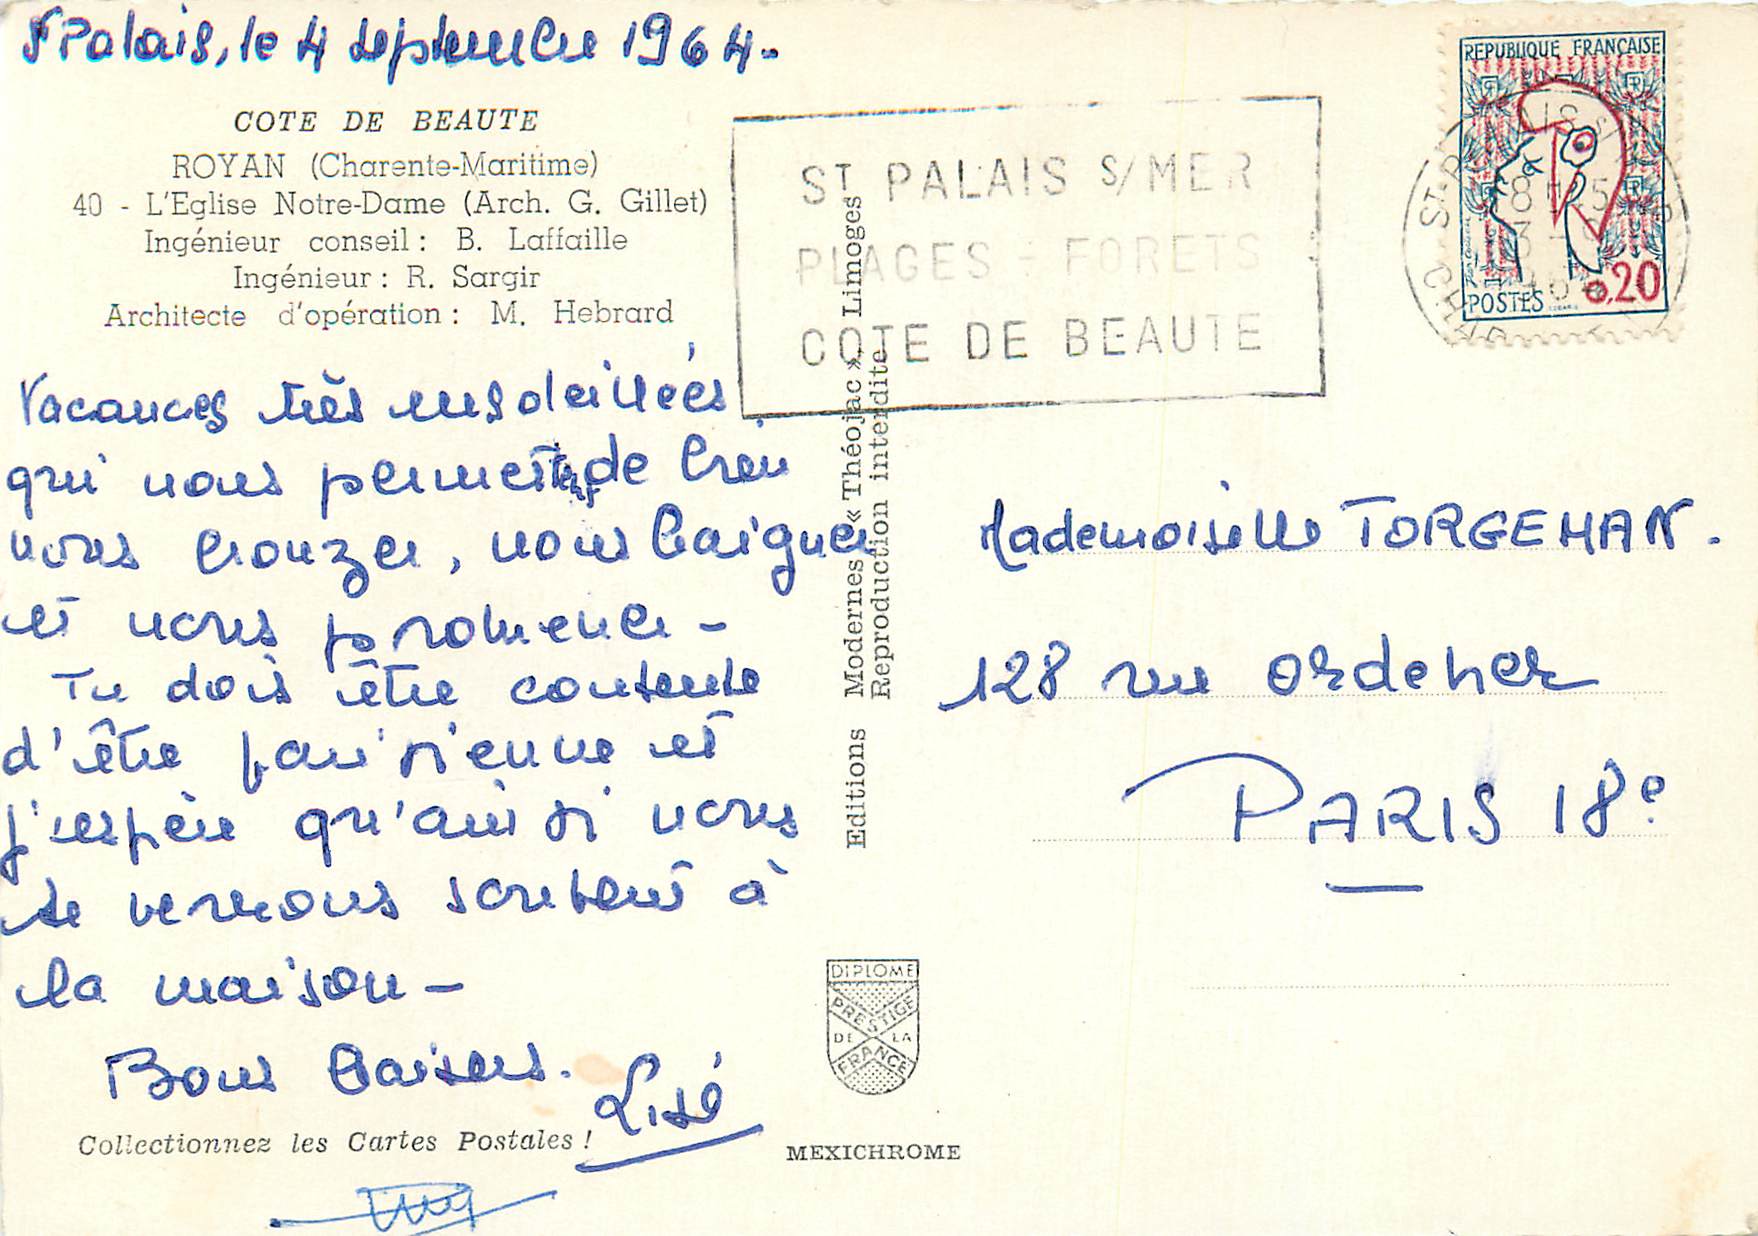 St Palais, le 4 septembre 1964.
COTE DE BEAUTE
ROYAN (Charente-Maritime)
40 - L'Eglise Notre-Dame (Arch. G. Gillet)
Ingénieur conseil : B. Laffaille
Ingénieur : R. Sargir
Architecte d'opération : M. Hebrard
Vacances très ensoleillées
qui nous permettent de bien
nous bronzer, nous baigner
et nous promener -
Tu dois être contente
d'être parisienne et
j'espère qu'ainsi nous
te verrons souvent à
la maison -
Bons baisers.
Lisé
Collectionnez les Cartes Postales !
Editions Modernes « Théojac » Limoges
Reproduction interdite
DIPLOME
PRESTIGE
DE LA
FRANCE
MEXICHROME
ST PALAIS S/MER
PLAGES - FORETS
COTE DE BEAUTE
REPUBLIQUE FRANÇAISE
POSTES
0,20
Mademoiselle TORGEMAN.
128 rue Ordener
PARIS 18e